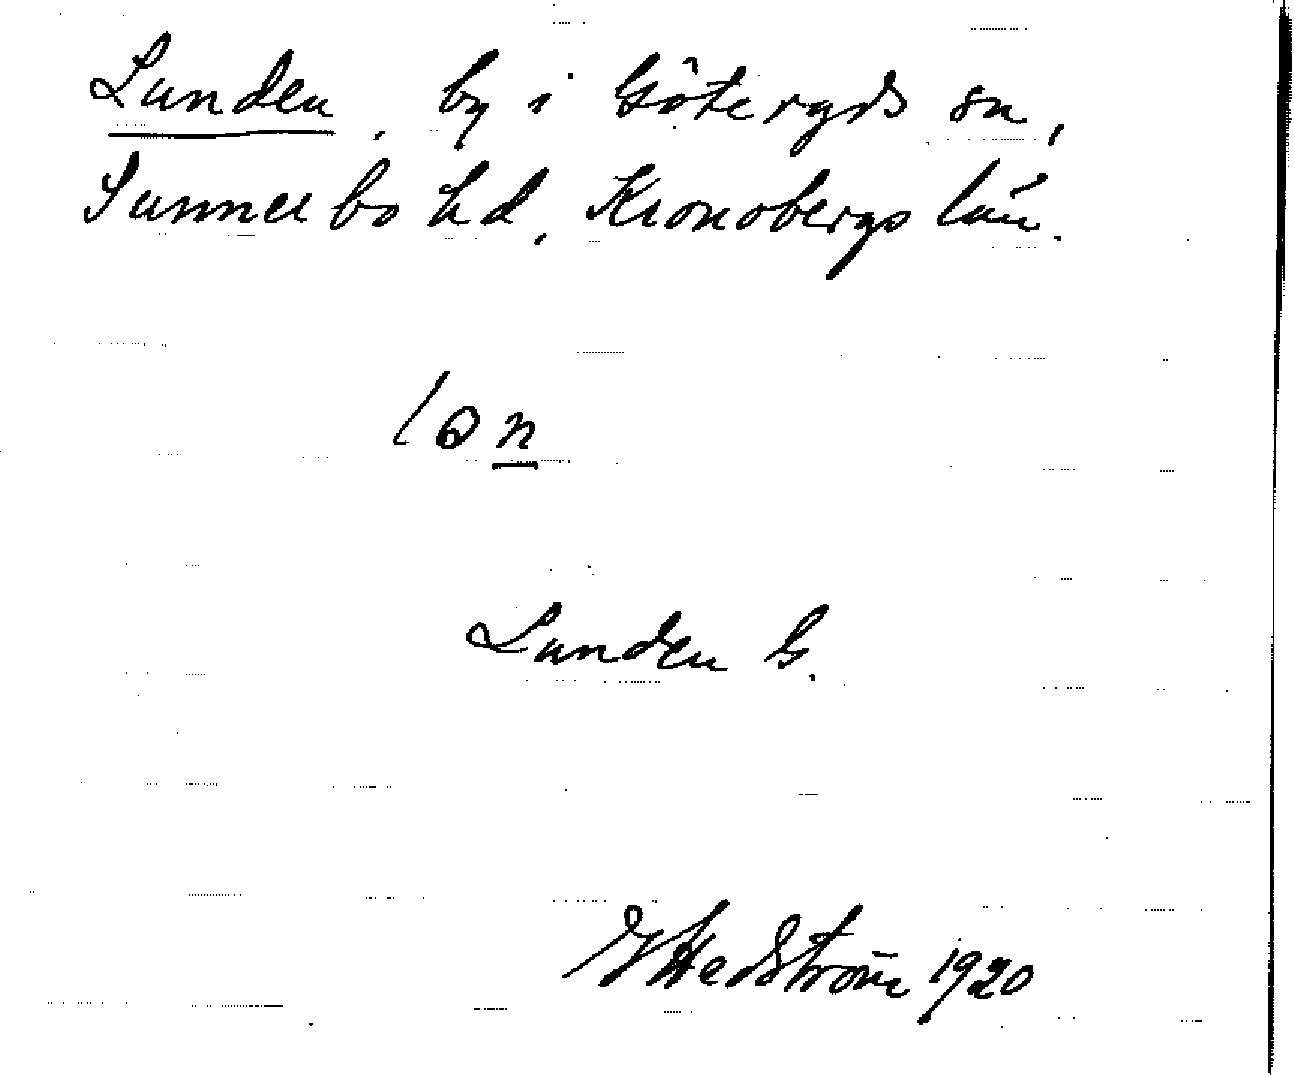 Lunden, by i Göteryds sn,
Sunnerbo hd, Kronobergs län.
lɵn
Lunden G.
G Hedström 1920